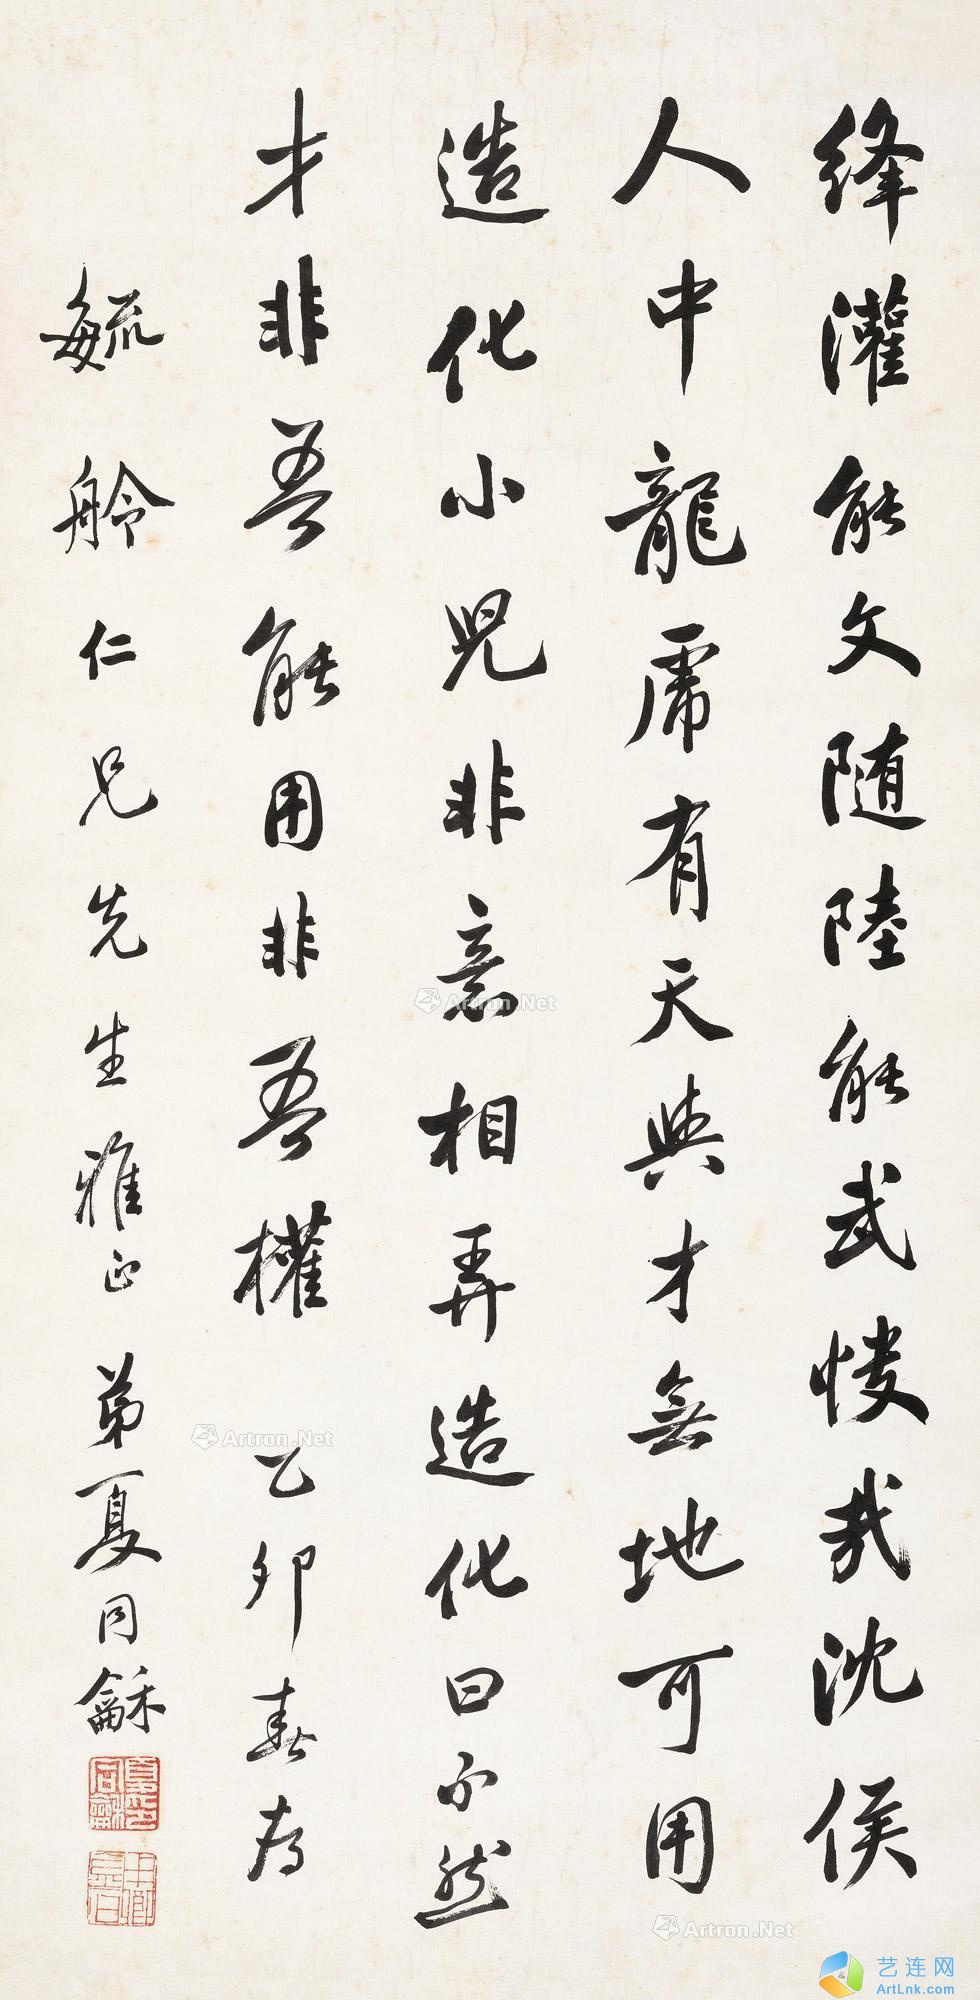 絳灌能文隨陸能武悽哉沈侯
人中龍虎有天與才無地可用
造化小兒非意相弄造化曰不然
才非吾能用非吾權 乙卯春為
毓舲仁兄先生雅正 弟夏同龢
夏同龢印
Artron.Net
Artron.Net
Artron.Net
艺连网
ArtLnk.com